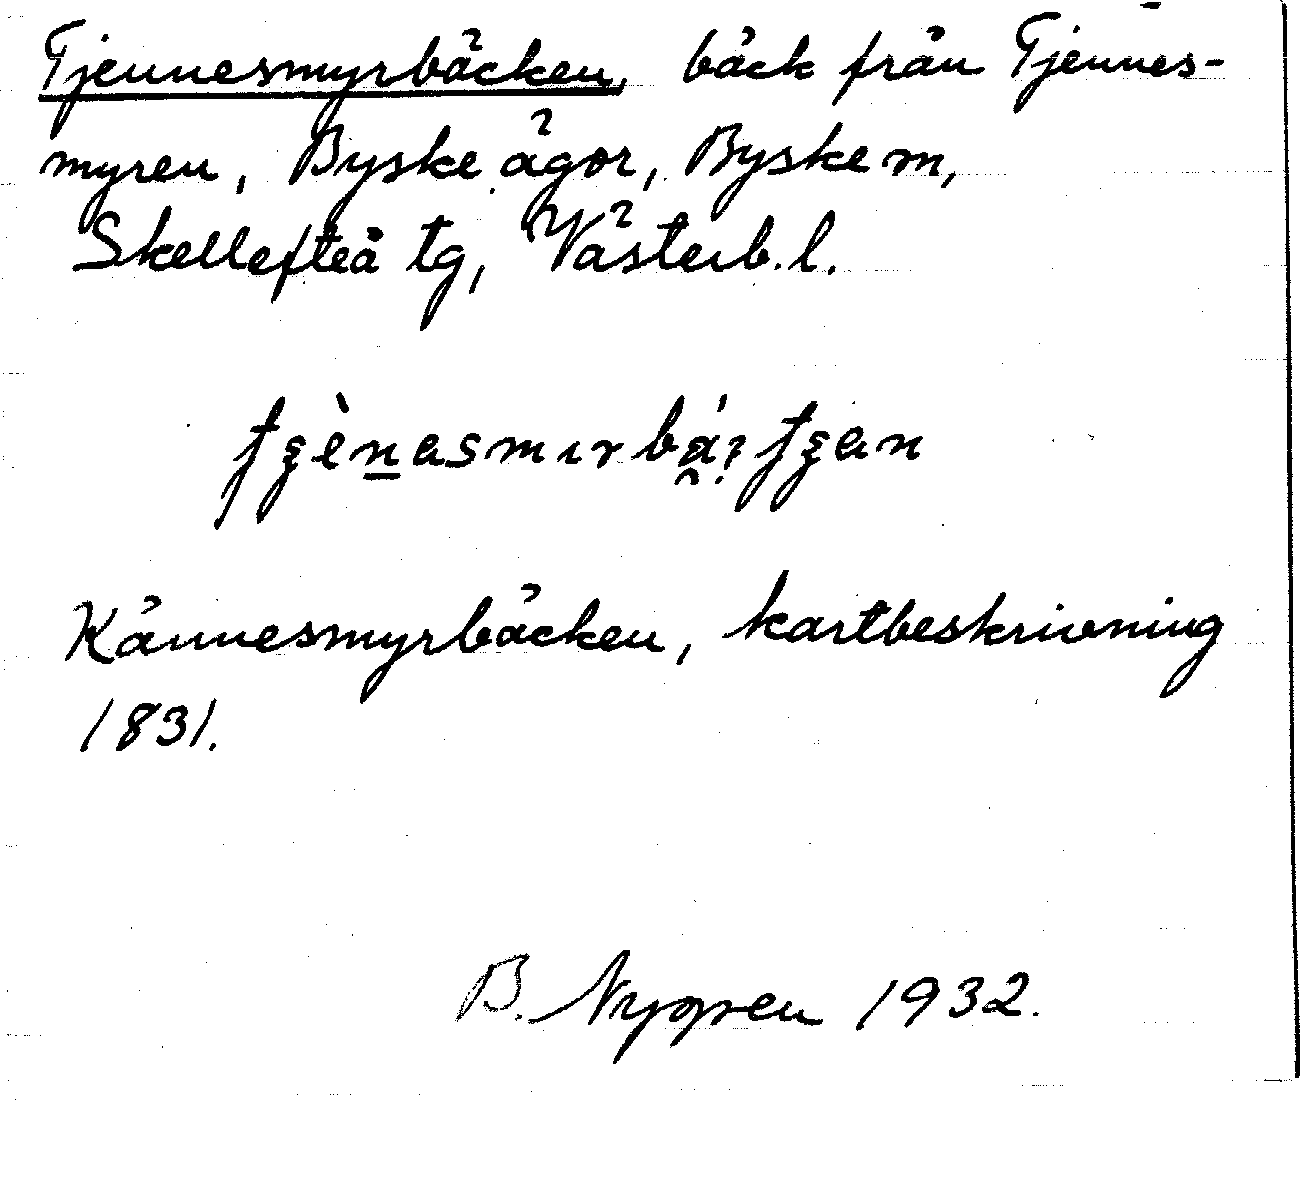 Tjennesmyrbäcken, bäck från Tjennes-
myren, Byske ägor, Byske m,
Skellefteå tg, Västerb. l.
Kännesmyrbäcken, kartbeskrivning
1831.
B. Nygren 1932.